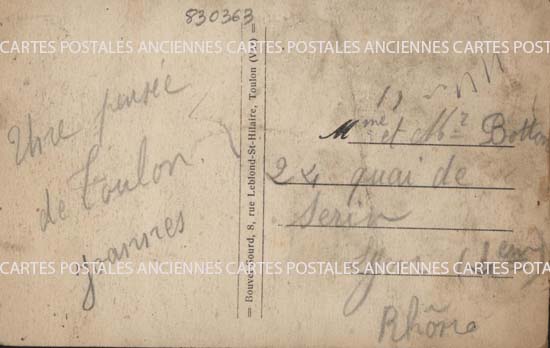 830363
CARTES POSTALES ANCIENNES CARTES POSTALES ANCIENNES CARTES POSTALES
Une pensée
de Toulon
Joannes
= Bouvet-Sourd, 8, rue Leblond-St-Hilaire, Toulon (Var) =
Mme et Mr
24 quai de
Serin
Lyon (1er)
Rhône
CARTES POSTALES ANCIENNES CARTES POSTALES ANCIENNES CARTES POSTALES